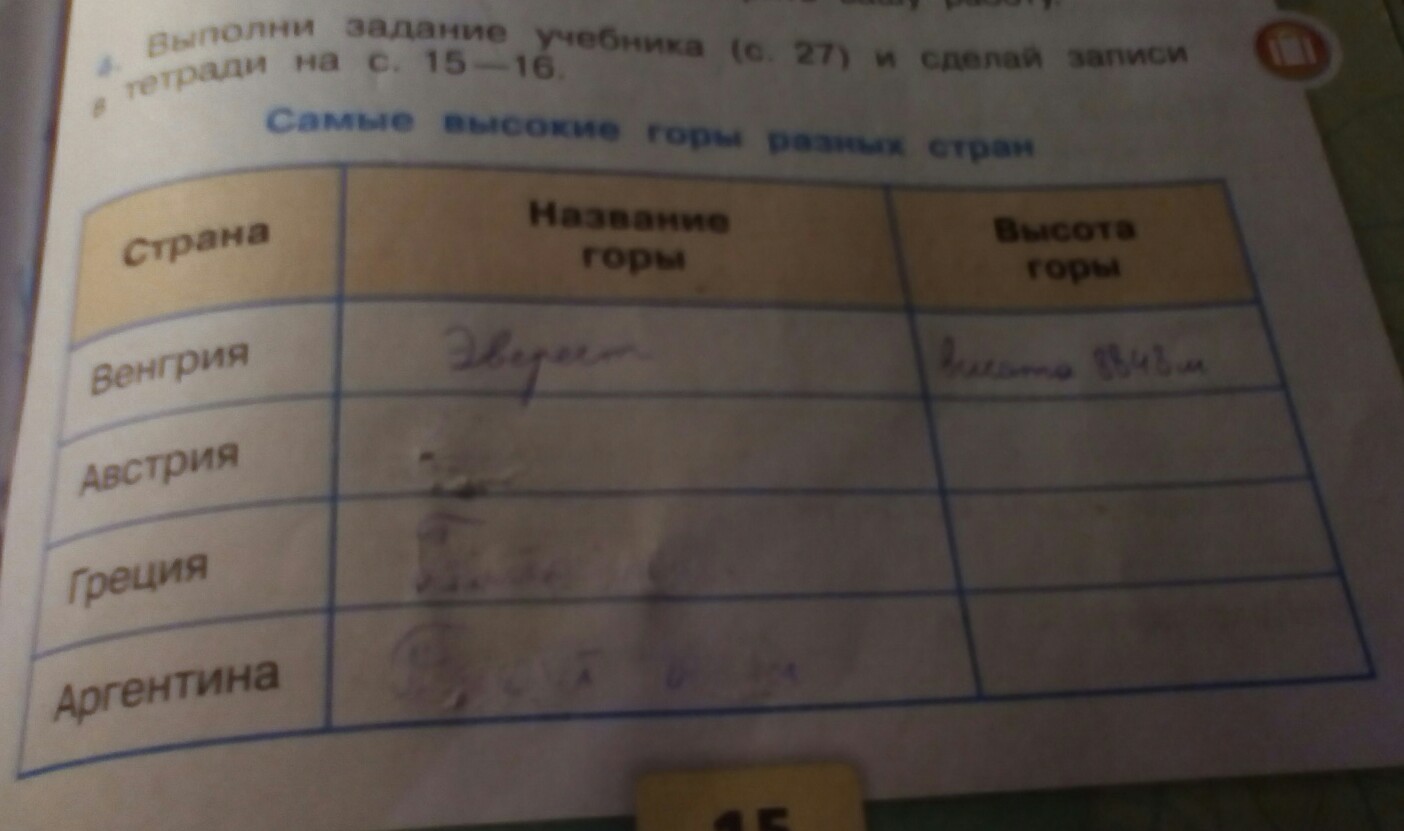 вашу работу.
4. Выполни задание учебника (с. 27) и сделай записи
в тетради на с. 15—16.
Самые высокие горы разных стран
Страна
Название
горы
Высота
горы
Венгрия
Эверест
высота 8848 м
Австрия
Греция
Аргентина
15